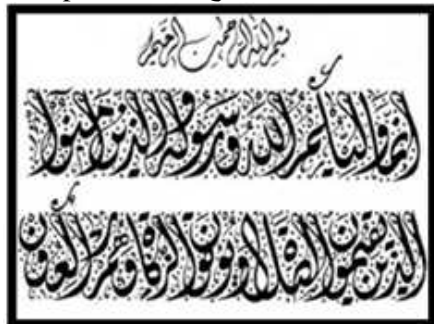 بسم الله الرحمن الرحيم
إنما وليكم الله ورسوله والذين آمنوا
الذين يقيمون الصلاة ويؤتون الزكاة وهم راكعون